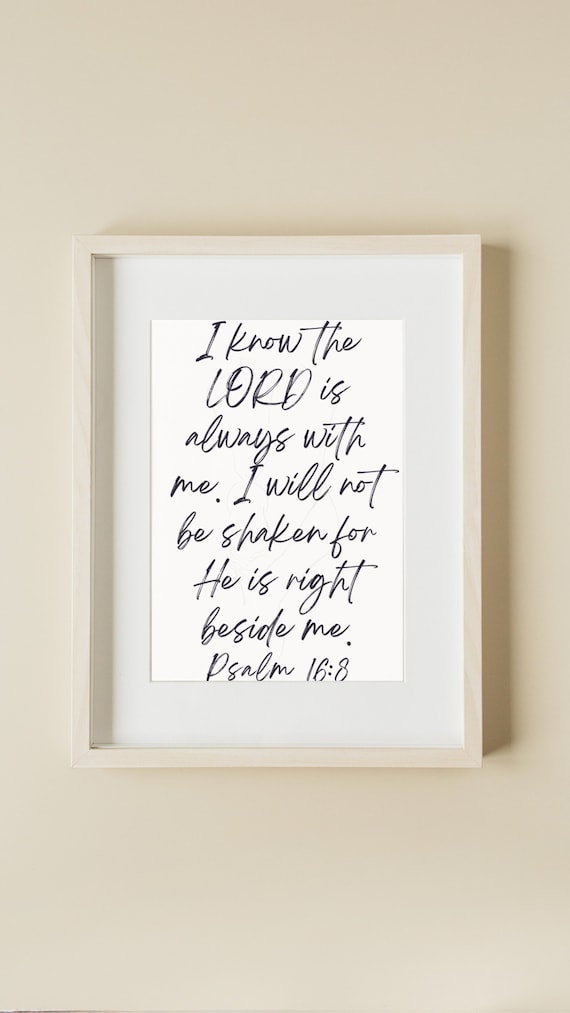 I know the
LORD is
always with
me. I will not
be shaken for
He is right
beside me.
Psalm 16:8